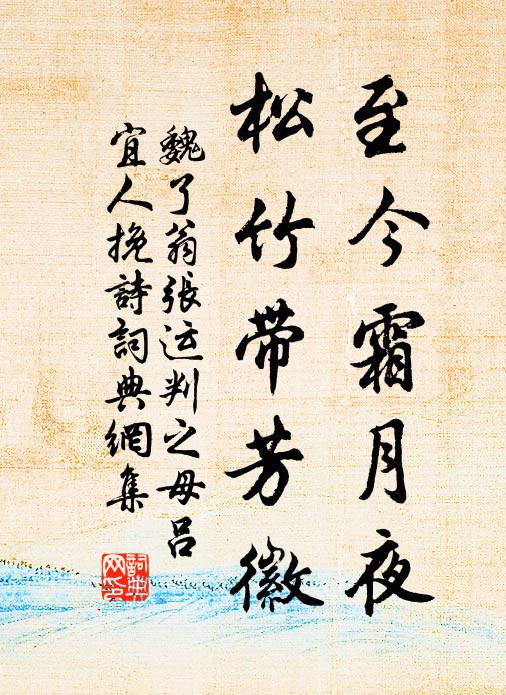 至今霜月夜
松竹带芳徽
魏了翁張运判之母吕
宜人挽詩詞典網集